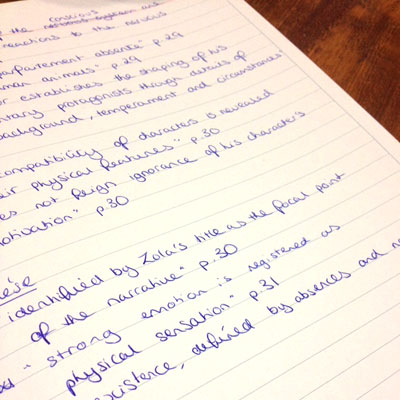 conscious
of the nervous system and
reactions to the nervous
parfaitement absente" p.29
human animals" p.29
or establishes the shaping of his
protagonists through details of
background, temperament and circumstances"
compatibility of characters is revealed
their physical features" p.30
does not feign ignorance of his characters
motivation" p.30
identified by Zola's title as the focal point
of the narrative" p.30
"strong emotion is registered as
physical sensation" p.31
existence, defined by absences and